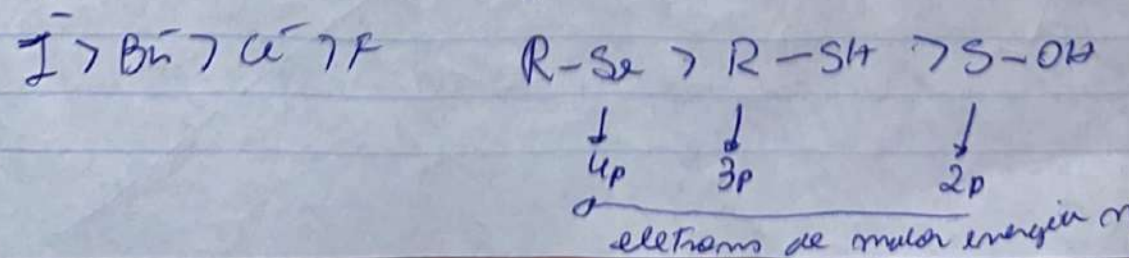 I⁻ > Br⁻ > Cl⁻ > F R-Se > R-SH > S-OH
4p 3p 2p
eletrons de maior energia